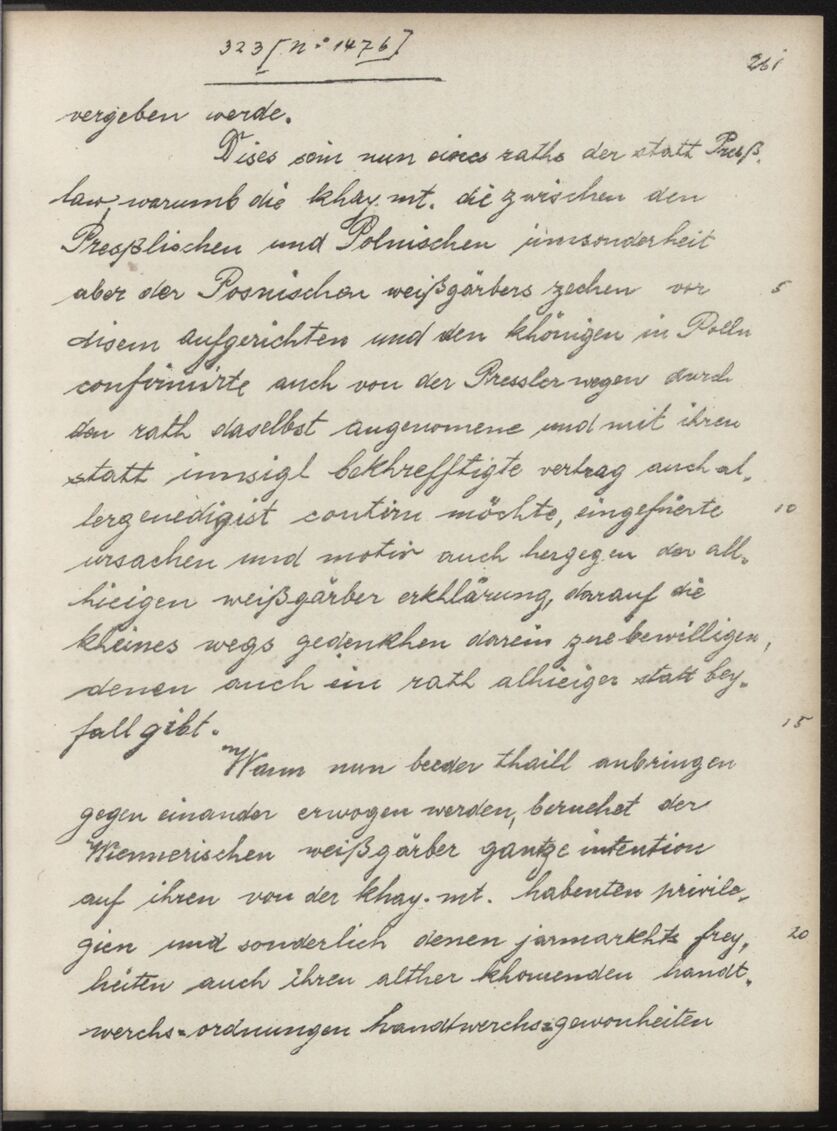 323 [N° 1476]
261
vergeben werde.
Dises sein nun eines raths der statt Preß¬
law, warumb die khay. mt. die zwischen den
Preßlischen und Polnischen ümsonderheit
aber der Posnischen weißgärbers zechen vor
disem aufgerichten und den khönigen in Polln 5
confirmirte auch von der Pressler wegen durch
den rath daselbst angenomene und mit ihren
statt innsigl bekhrefftigte vertrag auch al¬
lergenedigist confirm möchte, eingefüerte 10
ursachen und motiv auch hergegen der all¬
hieigen weißgärber erkhlärung, darauf die
kheines wegs gedenkhen darein zue bewilligen,
denen auch ein rath alhieiger statt bey¬
fall gibt. 15
Wann nun beeder thaill anbringen
gegen einander erwogen werden, beruehet der
Wiennerischen weißgärber gantze intention
auf ihren von der khay. mt. habenten privile¬
gien und sonderlich denen jarmarkhts frey¬ 20
heiten auch ihren alther khomenden handt¬
werchs=ordnungen handtwerchs=gewonheiten